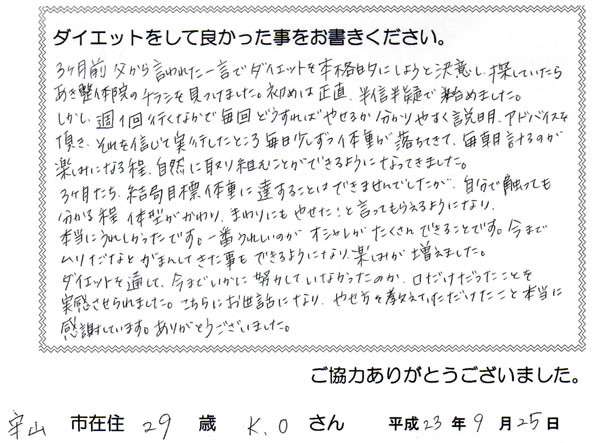 ダイエットをして良かった事をお書きください。
3ヶ月前 父から言われた一言でダイエットを本格的にしようと決意し、探していたら
あき整体院のチラシを見つけました。初めは正直、半信半疑で始めました。
しかし、週1回行くなかで毎回どうすればやせるか分かりやすく説明、アドバイスを
頂き、それを信じて実行したところ毎日少しずつ体重が落ちてきて、毎朝計るのが
楽しみになる程、自然に取り組むことができるようになってきました。
3ヶ月たち、結局目標体重に達することはできませんでしたが、自分で触っても
分かる程 体型がかわり、まわりにもやせた！と言ってもらえるようになり、
本当にうれしかったです。一番うれしいのがオシャレがたくさんできることです。今まで
ムリだなとがまんしてきた事もできるようになり、楽しみが増えました。
ダイエットを通して、今までいかに努力していなかったのか、口だけだったことを
実感させられました。こちらにお世話になり、やせ方を教えていただけたこと本当に
感謝しています。ありがとうございました。
ご協力ありがとうございました。
守山 市在住 29 歳 K.O さん 平成 23 年 9 月 25 日